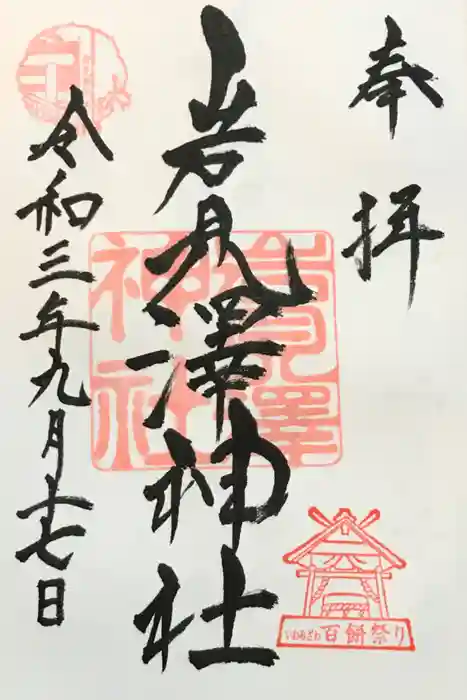 奉拝
岩見澤神社
岩見澤神社
令和三年九月十七日
いわみざわ百餅祭り